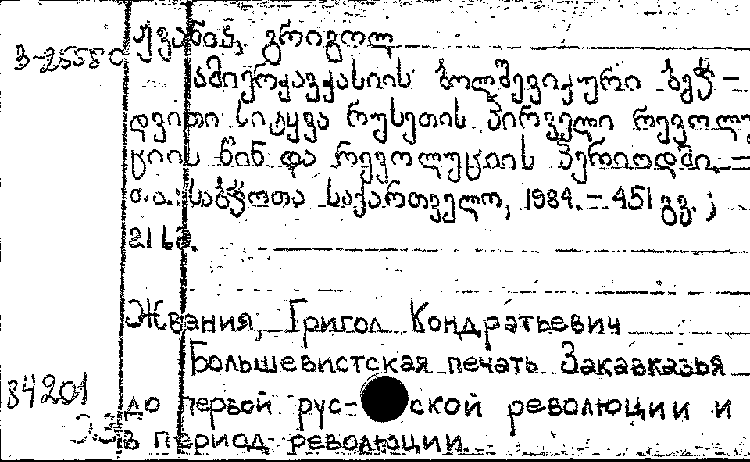 ჟვანია, გრიგოლ
В-25580
ამიერკავკასიის ბოლშევიკური ბეჭ-
დვითი სიტყვა რუსეთის პირველი რევოლუ
ციის წინ და რევოლუციის პერიოდში. –
თ.: საბჭოთა საქართველო, 1984. – 451 გვ. ;
21 სმ.
Жвания, Григол Кондратьевич
Большевистская печать Закавказья
84201
до первой рус- ской революции и
в период революции.